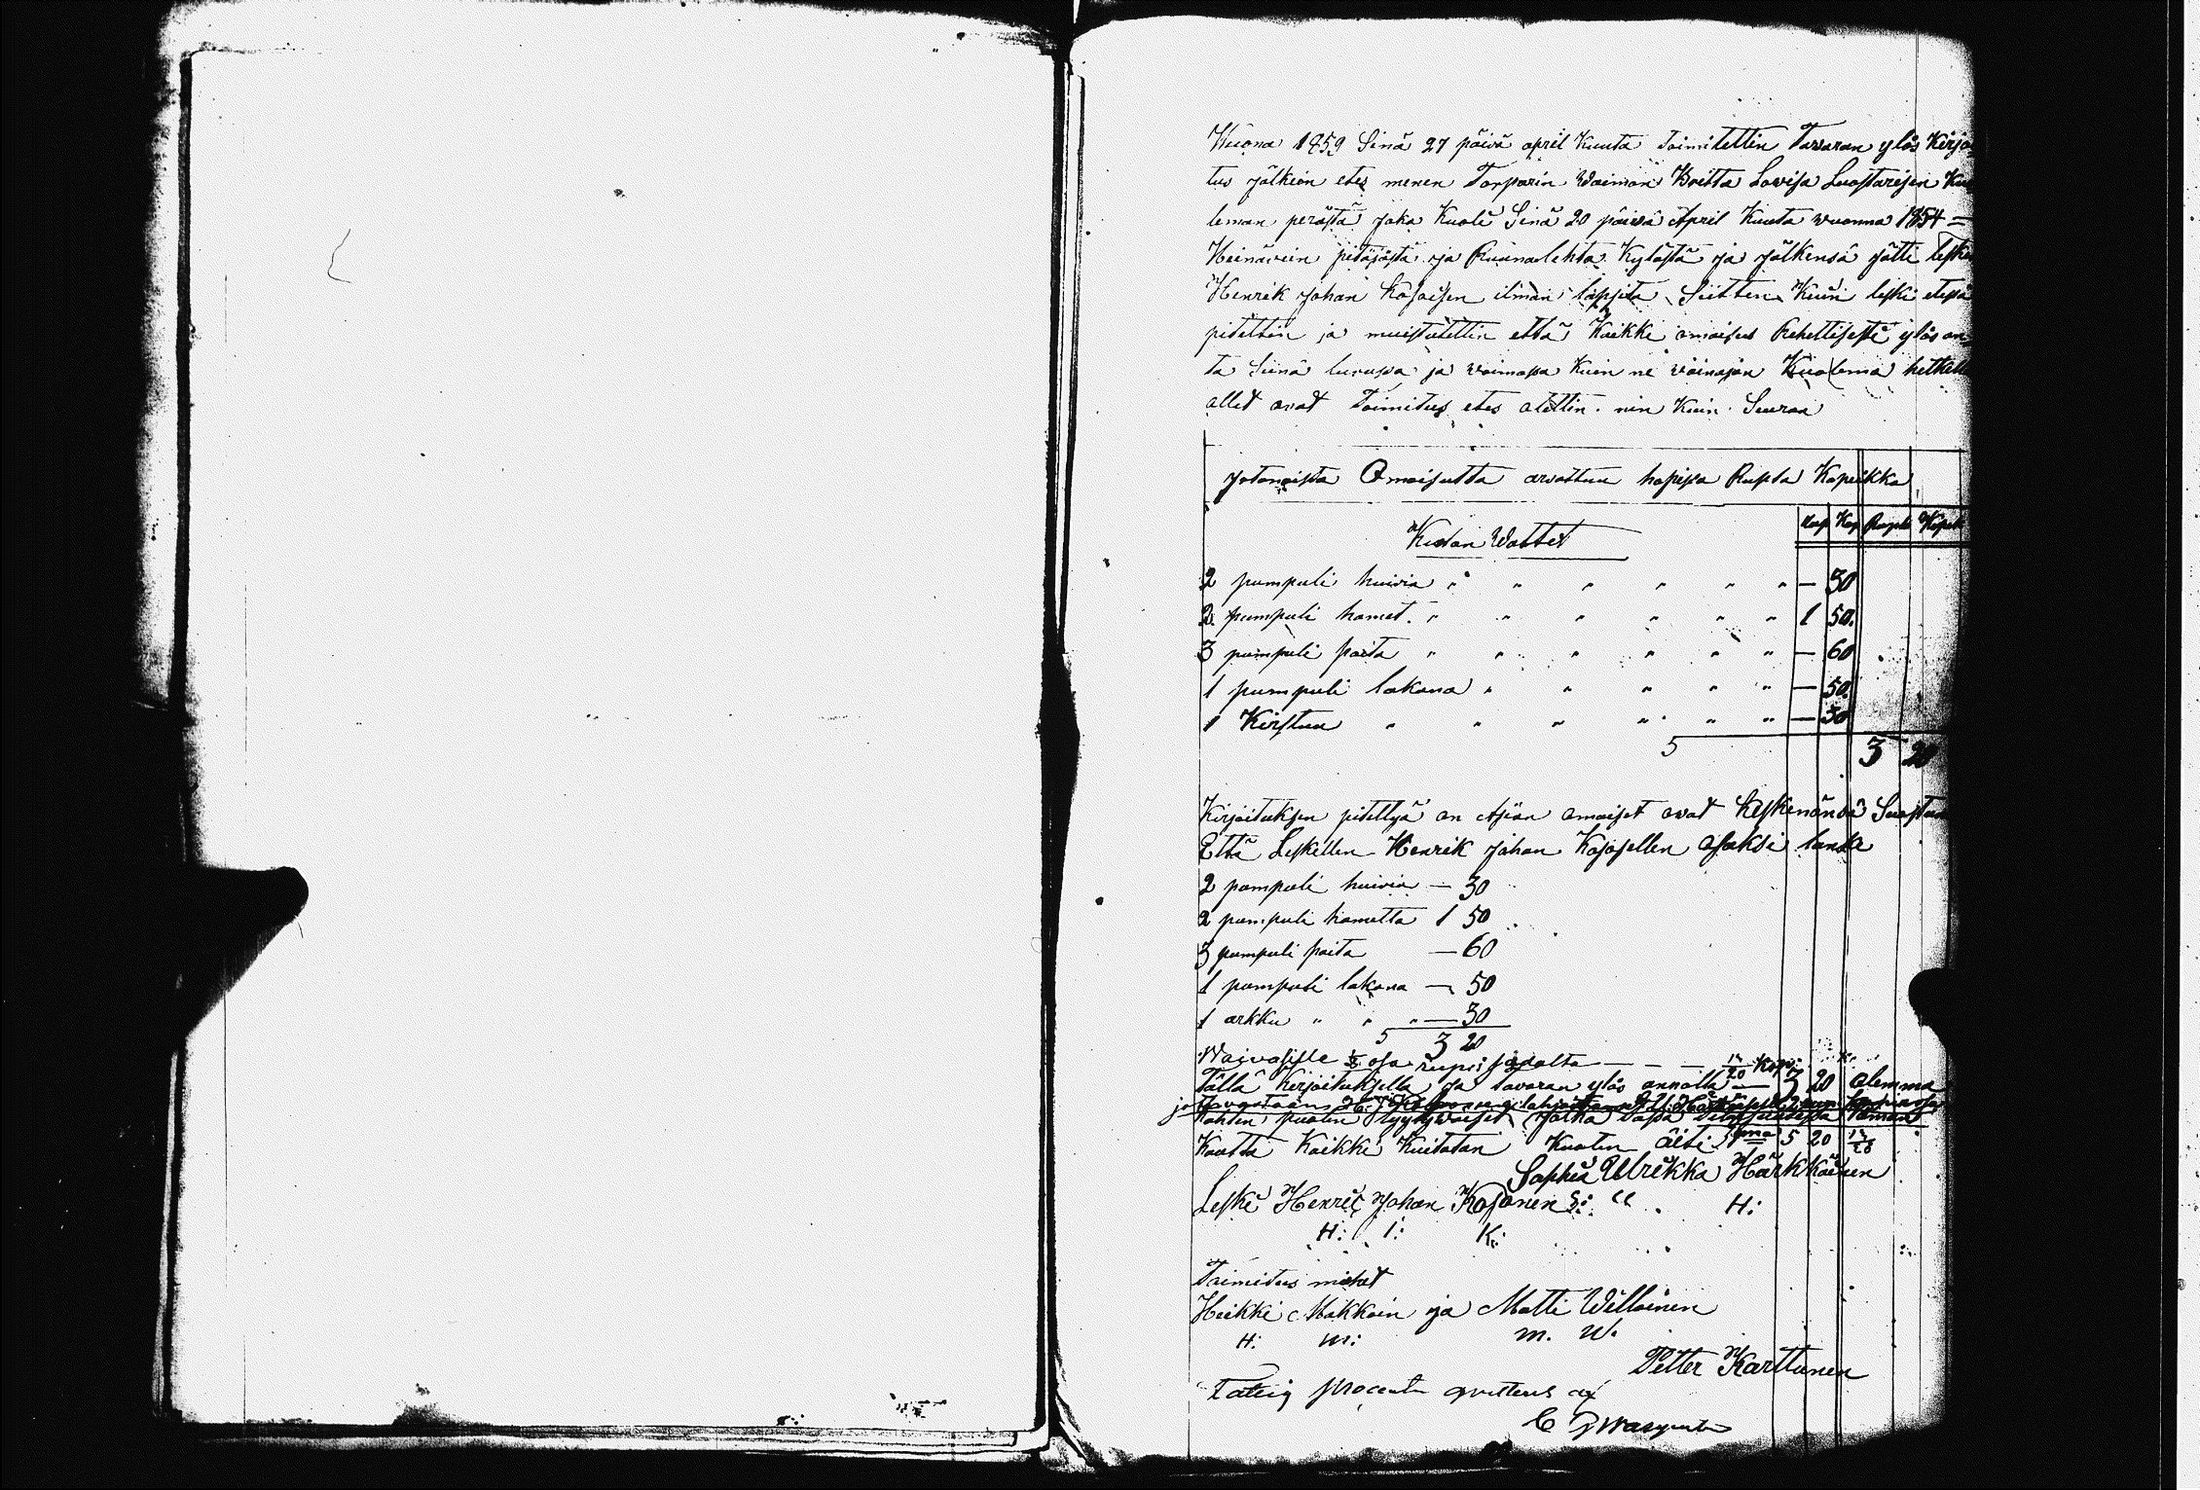 Wuona 1859 Sinä 27 päivä april Kuuta toimitettin Tavaran ylös Kirjoi
tus jälkein etes menen Torparin Waimon Britta Lovisa Luostarisen Kuo
leman perästä joka Kuoli Sinä 20 päivä April Kuuta wuonna 1854 =
Heinävein pitäjästä ja Ruunalehta Kylästä ja jälkensä jätti lesken
Henrik Johan Kosoisen ilman lapsita Siitten Kuin leski etesä
pitettin ja muistutettin että Kaikki omaisus Rehellisesti ylös an
ta Siinä luvussa ja voimassa Kuin ne vainajan Kuolema hetkellä
ollet ovat Toimitus etes otettin nin Kuin Seuraa
jotonaista Omaisutta arvattuu hopissa Rupla Kopeikka
Rup Kop Rupla Kopek
Kidan Wattet
2 pumpuli huivia " " " " " " — 30
2 pumpuli hamet. " " " " " " 1 50.
3 pumpuli paita " " " " " " — 60
1 pumpuli lakana " " " " " — 50.
1 Kirstuu " " " " " " — 30
5 3 20
Kirjoituksen pitettyä on Asian omaiset ovat Keskenänsä Suostun
Että Leskellen Henrik Johan Kososellen Osaksi lanke
2 pumpuli huivia — 30
2 pumpuli hametta 1 50
3 pumpuli paita — 60
1 pumpuli lakana — 50
1 arkku " " " — 30
5 3 20
Waivasille osa
Tällä Kirjoituksella ja tavaran ylös annolla — 3 20 olemma
Kohten puolin
Kautta Kaikki Kuitatan Kuolun äiti 5 20
Sophia Ulrikka Härkköinen
Leski Henric Johan Kosonen S: U H:
H: I: K:
Toimitus miehet
Heikki Makkoin ja Matti Willainen
H: M: M. W.
Petter Karttunen
Fattig procenten qvitteras af